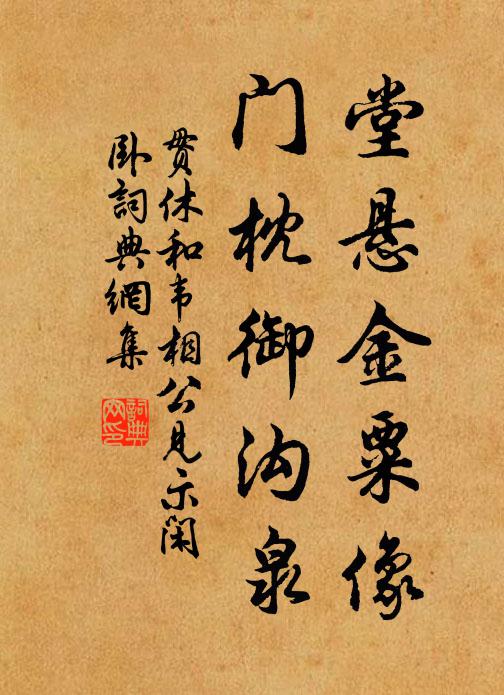 堂悬金粟像
门枕御沟泉
贯休和韦相公见示闲
卧词典网集
词典网印